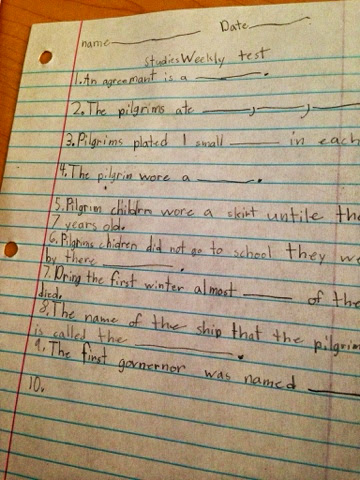 Date
name
StudiesWeekly test
1. An agreemant is a ______.
2. The pilgrims ate ____, ____, ____
3. Pilgrims plated 1 small ____ in each
4. The pilgrim wore a ____.
5. Pilgrim children wore a skirt untile the
7 years old.
6. Pilgrims chidren did not go to school they we
by there ______.
7. Dring the first winter almost ____ of the
died.
8. The name of the ship that the pilgrim
is called the ______.
9. The first governor was named ____
10.